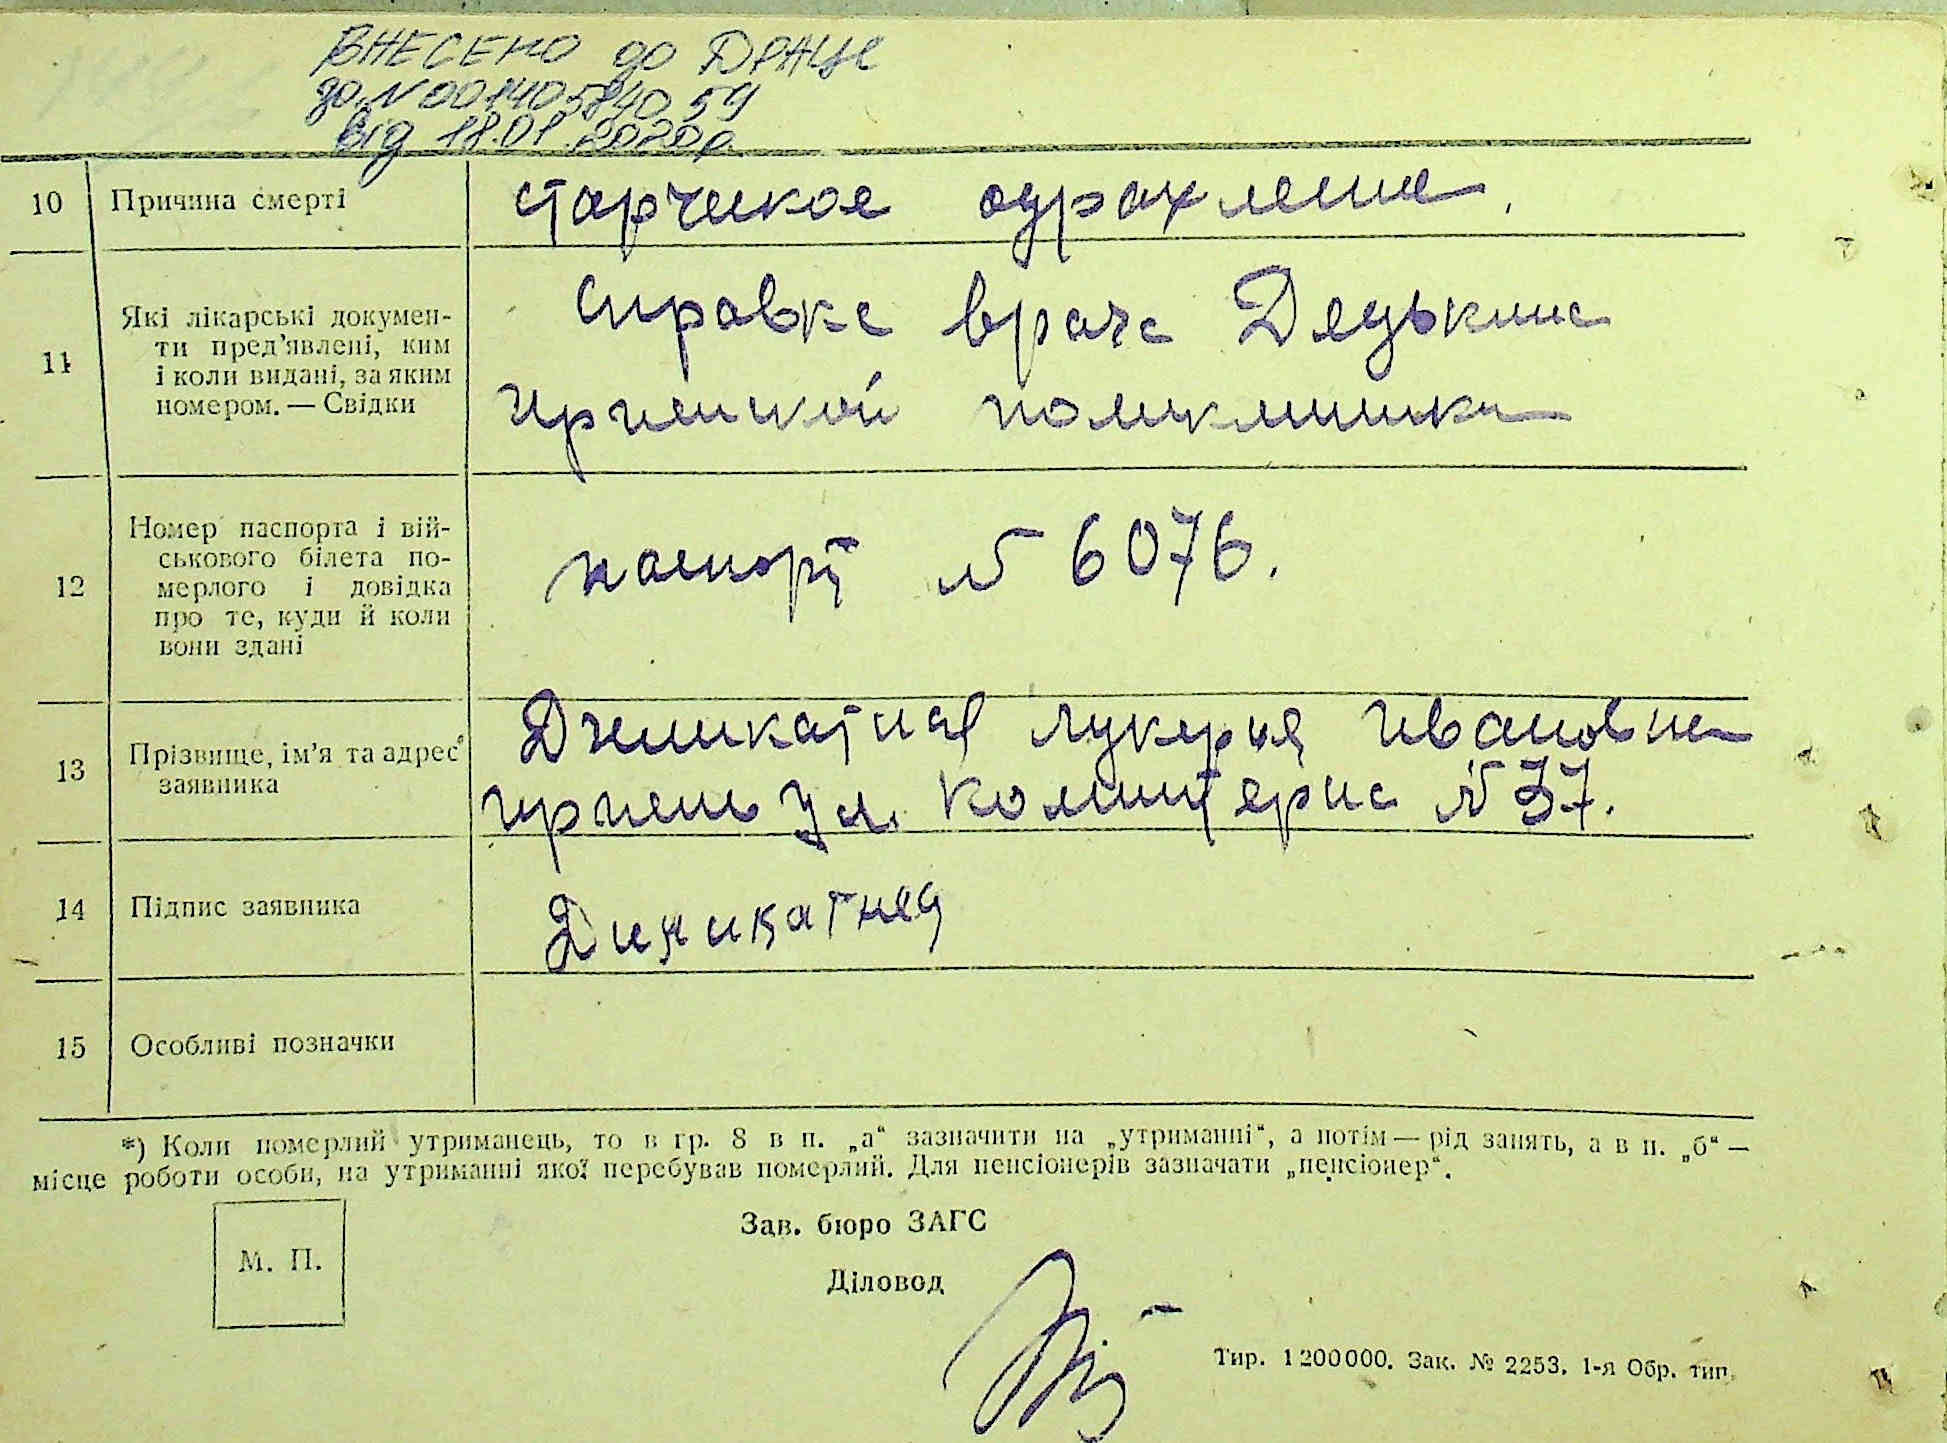 ВНЕСЕНО до ДРАЦС
за N 00140584059
від 18.01.2020р
10 Причина смерті старческое одряхление.
11 Які лікарські докумен-
ти пред'явлені, ким
і коли видані, за яким
номером. — Свідки
справка врача Дядькина
Ирпенской поликлиники
12 Номер паспорта і вій-
ськового білета по-
мерлого і довідка
про те, куди й коли
вони здані
паспорт № 6076.
13 Прізвище, ім'я та адрес
заявника
Лукерия Ивановна
Ирпень ул. Коминтерна № 37.
14 Підпис заявника
15 Особливі позначки
*) Коли померлий утриманець, то в гр. 8 в п. „а“ зазначити на „утриманні“, а потім — рід занять, а в п. „б“ —
місце роботи особи, на утриманні якої перебував померлий. Для пенсіонерів зазначати „пенсіонер“.
Зав. бюро ЗАГС
М. П.
Діловод
Тир. 1200000. Зак. № 2253. 1-я Обр. тип.